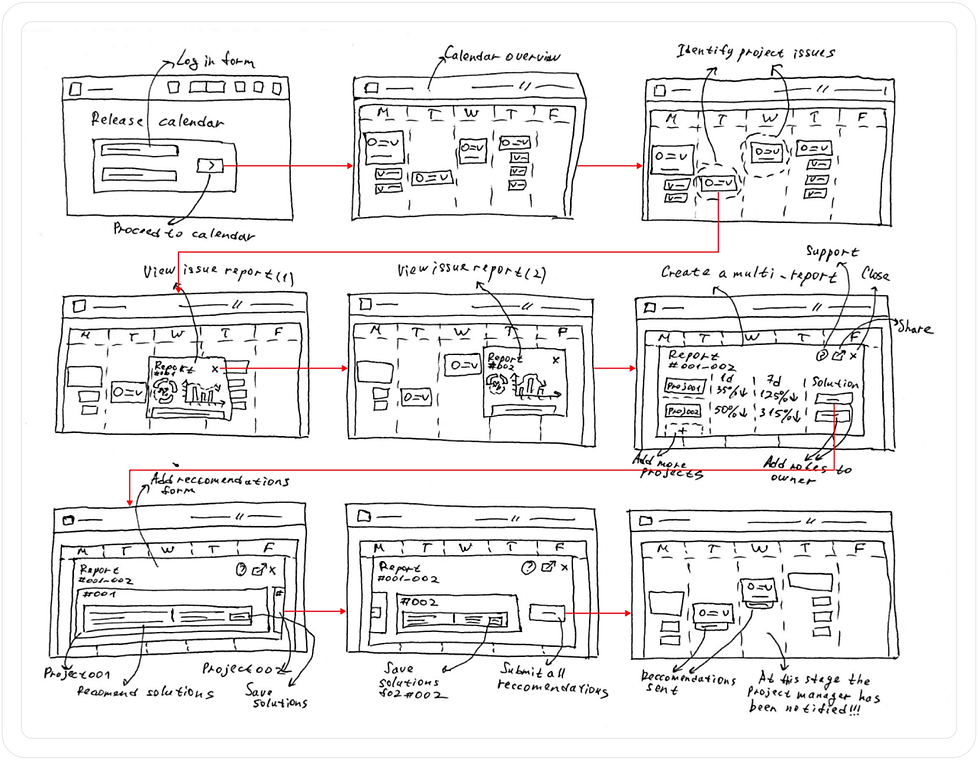 Log in form
Release calendar
Proceed to calendar
Calendar overview
M T W T F
Identify project issues
M T W T F
View issue report (1)
M T W T F
Report x
View issue report (2)
M T W T F
Report x
#002
Create a multi-report
Support
Close
Share
M T W T F
Report ? x
#001-002
1d 7d Solution
Proj001 35%↓ 125%↓
Proj002 50%↓ 315%↓
+
Add more
projects
Add notes to
owner
Add reccomendations
form
M T W T F
Report ? x
#001-002
#001 #
Project001
Recomend solutions
Project002
Save
solutions
M T W T F
Report ? x
#001-002
#002
Save
solutions
for #002
Submit all
reccomendations
M T W T F
Reccomendations
sent
At this stage the
Project manager has
been notified!!!